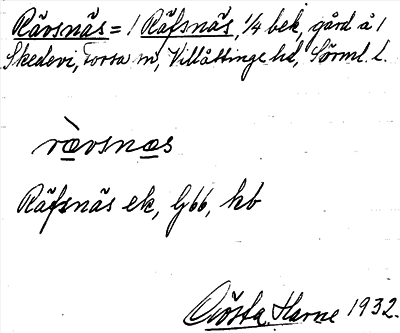 Rävsnäs = 1 Räfsnäs, 1/4 bek, gård å 1
Skedevi, Torsa sn, Villåttinge hd, Sörml. l.
ràvsnæs
Räfsnäs ek, G66, hb
Gösta Harne 1932.